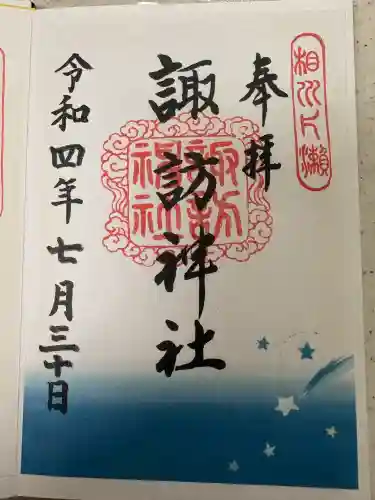 相州片瀬
奉拝
諏訪神社
諏訪神社
令和四年七月三十日